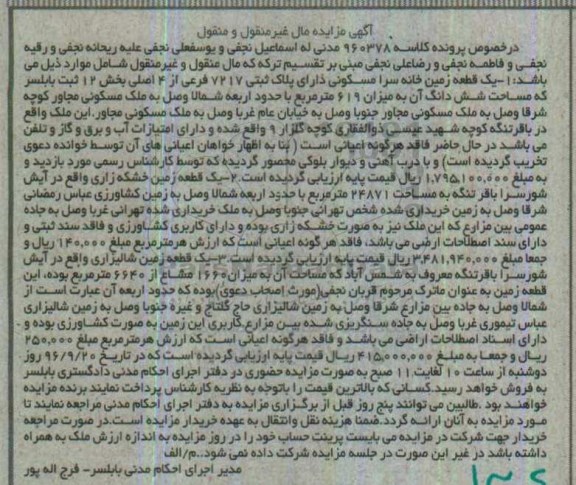 آگهی مزایده مال غیرمنقول و منقول
درخصوص پرونده کلاسه ۹۶۰۳۷۸ مدنی له اسماعیل نجفی و یوسفعلی نجفی علیه ریحانه نجفی و رقیه
نجفی و فاطمه نجفی و رضاعلی نجفی مبنی بر تقسیم ترکه که مال منقول و غیرمنقول شامل موارد ذیل می
باشد:۱-یک قطعه زمین خانه سرا مسکونی دارای پلاک ثبتی ۷۲۱۷ فرعی از ۴ اصلی بخش ۱۲ ثبت بابلسر
که مساحت شش دانگ آن به میزان ۶۱۹ مترمربع با حدود اربعه شمالا وصل به ملک مسکونی مجاور کوچه
شرقا وصل به ملک مسکونی مجاور جنوبا وصل به خیابان عام غربا وصل به ملک مسکونی مجاور.این ملک واقع
در باقرتنگه کوچه شهید عیسی ذوالفقاری کوچه گلزار ۹ واقع شده و دارای امتیازات آب و برق و گاز و تلفن
می باشد در حال حاضر فاقد هرگونه اعیانی است ( بنا به اظهار خواهان اعیانی های آن توسط خوانده دعوی
تخریب گردیده است) و با درب آهنی و دیوار بلوکی محصور گردیده که توسط کارشناس رسمی مورد بازدید و
به مبلغ ۱,۷۹۵,۱۰۰,۰۰۰ ریال قیمت پایه ارزیابی گردیده است.۲-یک قطعه زمین خشکه زاری واقع در آیش
شورسرا باقر تنگه به مساحت ۲۴۸۷۱ مترمربع با حدود اربعه شمالا وصل به زمین کشاورزی عباس رمضانی
شرقا وصل به زمین خریداری شده شخص تهرانی جنوبا وصل به ملک خریداری شده تهرانی غربا وصل به جاده
عمومی بین مزارع که این ملک نیز به صورت خشکه زاری بوده و دارای کاربری کشاورزی و فاقد سند ثبتی و
دارای سند اصطلاحات ارضی می باشد، فاقد هر گونه اعیانی است که ارزش هرمترمربع مبلغ ۱۴۰,۰۰۰ ریال و
جمعا مبلغ ۳,۴۸۱,۹۴۰,۰۰۰ ریال قیمت پایه ارزیابی گردیده است.۳-یک قطعه زمین شالیزاری واقع در آیش
شورسرا باقرتنگه معروف به شمس آباد که مساحت آن به میزان۱۶۶۰ مشاع از ۶۶۴۰ مترمربع بوده، این
قطعه زمین به عنوان ماترک مرحوم قربان نجفی(مورث اصحاب دعوی)بوده که حدود اربعه آن عبارت است از
شمالا وصل به جاده بین مزارع شرقا وصل به زمین شالیزاری حاج گلتاج و غیره جنوبا وصل به زمین شالیزاری
عباس تیموری غربا وصل به جاده سنگریزی شده بین مزارع.کاربری این زمین به صورت کشاورزی بوده و
دارای اسناد اصطلاحات اراضی می باشد و فاقد هرگونه اعیانی است که ارزش هرمترمربع مبلغ ۲۵۰,۰۰۰
ریال و جمعا به مبلغ ۴۱۵,۰۰۰,۰۰۰ ریال قیمت پایه ارزیابی گردیده است که در تاریخ ۹۶/۹/۲۰ روز
دوشنبه از ساعت ۱۰ لغایت ۱۱ صبح به صورت مزایده حضوری در دفتر اجرای احکام مدنی دادگستری بابلسر
به فروش خواهد رسید.کسانی که بالاترین قیمت را باتوجه به نظریه کارشناس پرداخت نمایند برنده مزایده
خواهند بود .طالبین می توانند پنج روز قبل از برگزاری مزایده به دفتر اجرای احکام مدنی مراجعه نمایند تا
مورد مزایده به آنان ارائه گردد.ضمنا هزینه نقل وانتقال به عهده خریدار مزایده است.در صورت مراجعه
خریدار جهت شرکت در مزایده می بایست پرینت حساب خود را در روز مزایده به اندازه ارزش ملک به همراه
داشته باشد در غیر این صورت در جلسه مزایده شرکت داده نمی شود..م/الف
مدیر اجرای احکام مدنی بابلسر- فرج اله پور